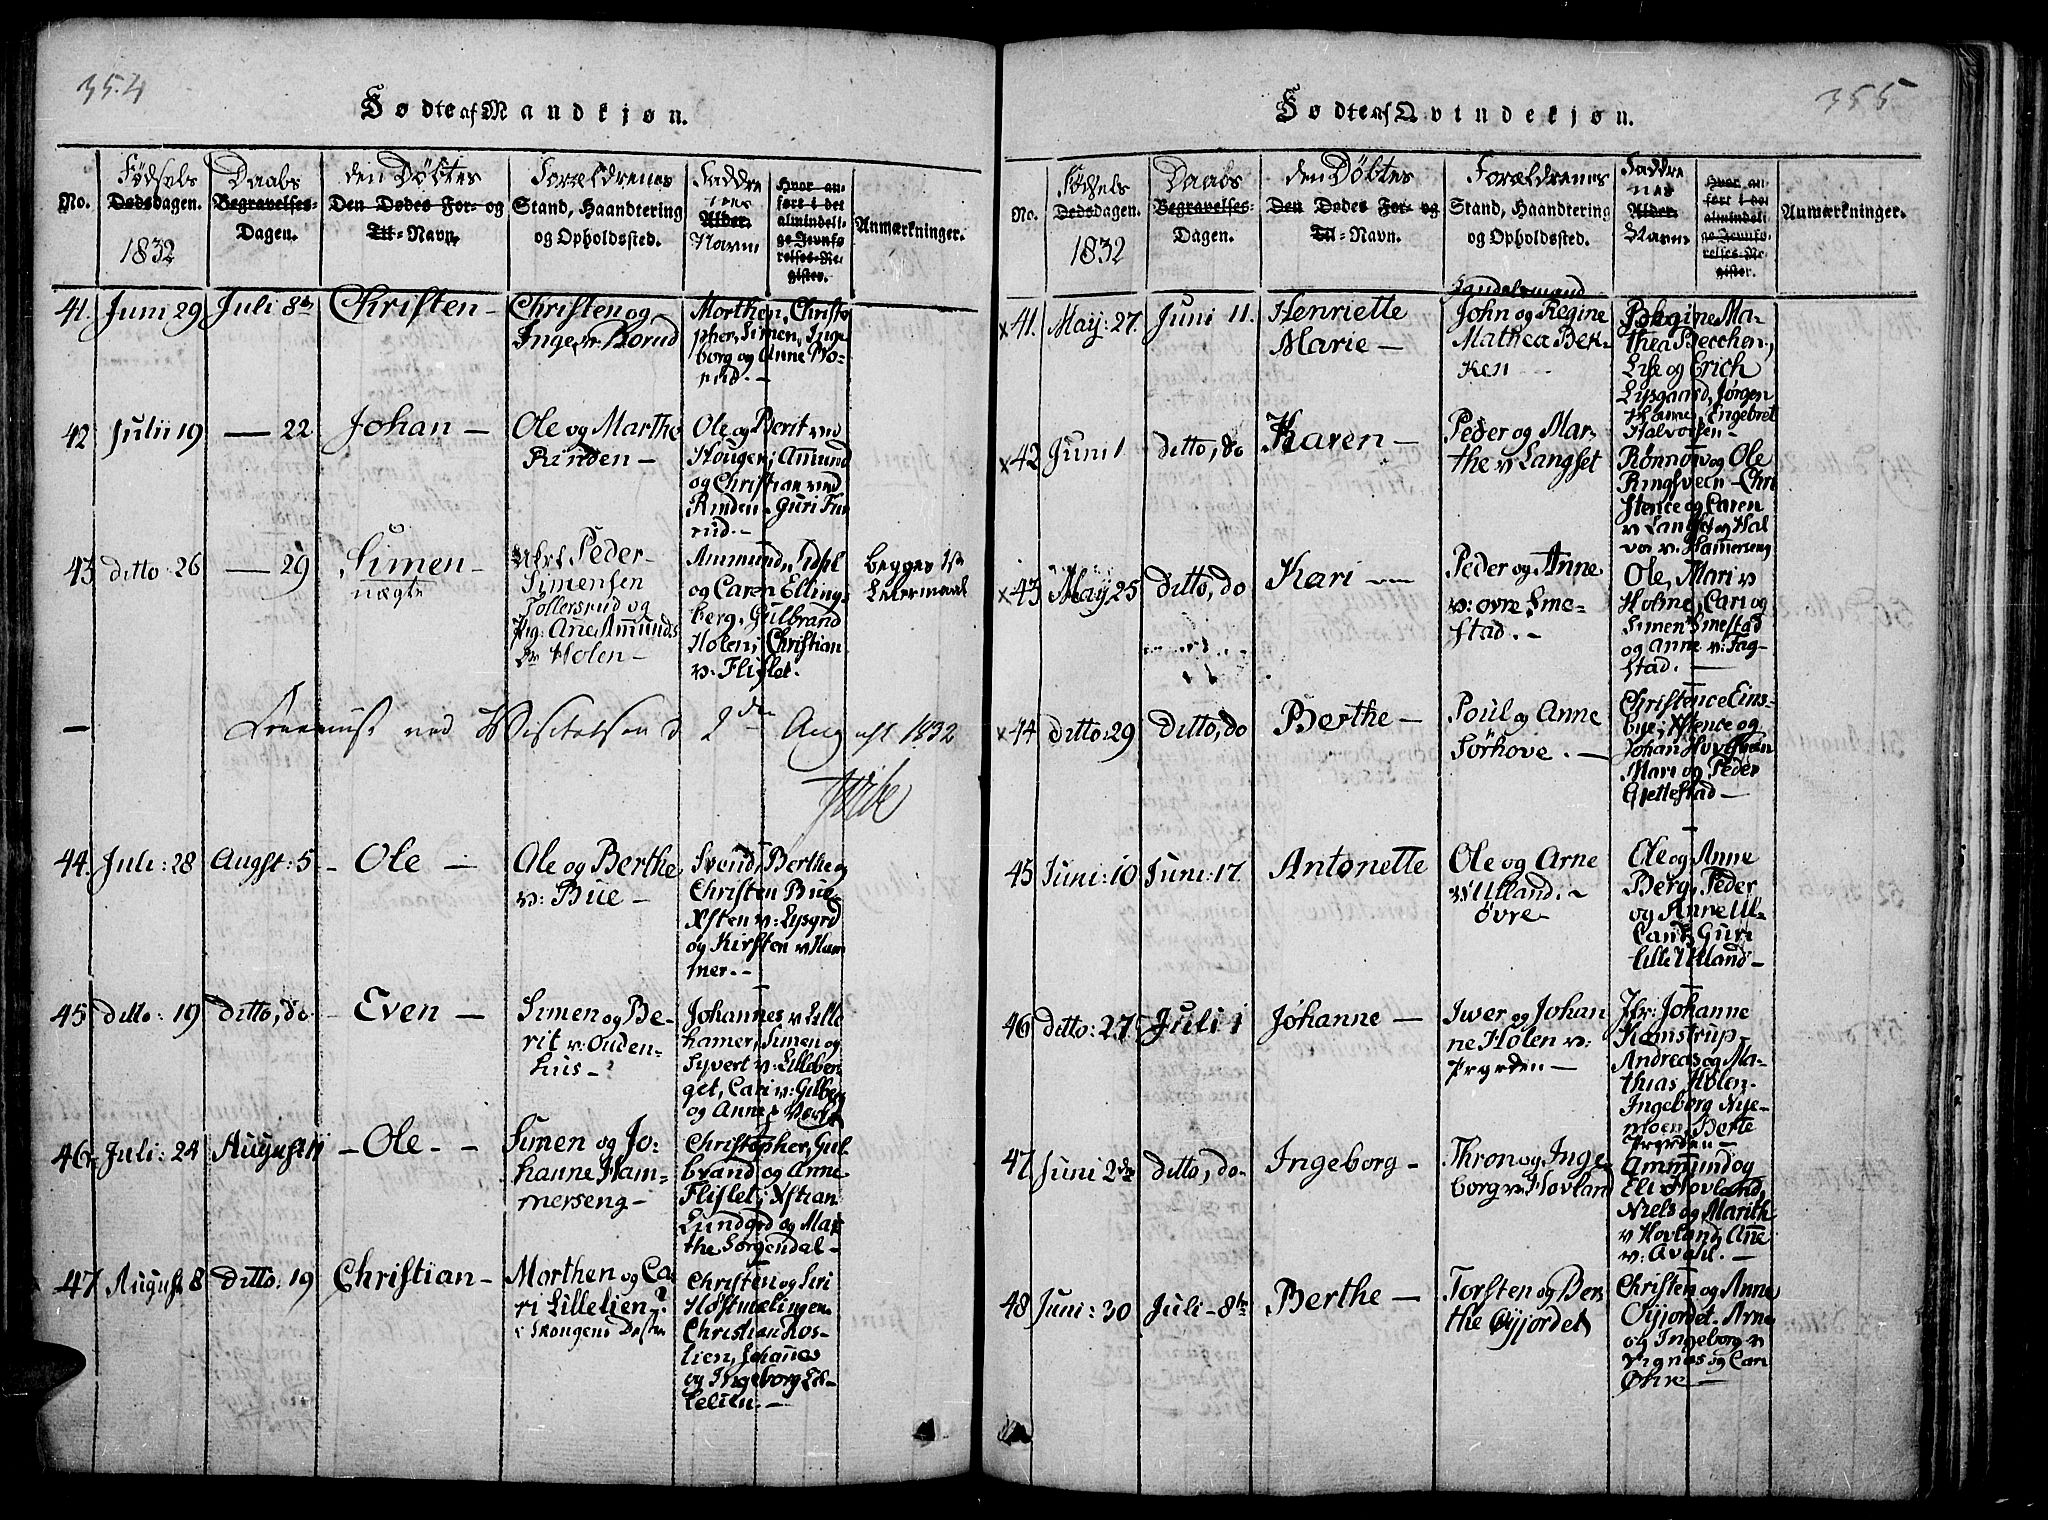 354
Fødte af Mandkjøn.
No.
Fødsels
Dødsdagen.
1832
Daabs
Begravelses-
Dagen.
den Døbtes
Den Dødes For- og
Til-Navn.
Forældrenes
Stand, Haandtering
og Opholdssted.
Faddre
Alder.
Navne
Hvor an-
ført i det
almindeli-
ge Jevnfø-
relses-Re-
gister.
Anmærkninger.
41. Juni 29 Juli 8de Christen –
Christen og
Inger v: Borud
Morthen, Christo
pher, Simen, Inge
borg og Anne Bo-
rud. –
42 Julii 19 — 22 Johan –
Ole og Marthe
Rinden –
Ole og Berit ved
Houger; Ammund
og Christian ved
Rinden. Guri Fu
rud. –
43 ditto: 26 — 29 Simen –
nægte
Peder
Simensen
Tollersrud og
Pig: Anne Amunds
Dr Holen –
Ammund, Sidsel
og Caren Elling
berg. Gulbrand
Holen; Christian
v: Flislet.
begges 1ste
Leiermaal
ved Visitatsen d 2den August 1832
44. Juli: 28 Augst: 5 – Ole –
Ole og Berthe
v: Bue –
Svend, Berthe og
Christen Bue
Xsten v: Lysgrd
og Kirsten v Ham
mer. –
45 ditto: 19 ditto, do – Even –
Simen og Be-
rit v: Ouden-
hus –
Johannes v Lille
hamer, Simen og
Syvert v: Lilleber
get, Cari v: Gilberg
og Anne
46 Juli: 24 August 11 – Ole – –
Simen og Jo-
hanne Ham-
merseng –
Christopher, Gul
brand og Anne
Flislet; Xstian
Lundgrd og Mar
the Sørgendal –
47 August 8 ditto: 19 Christian –
Morthen og Ca
ri Lillelien
i Skougens
Christen og Siri
Høstmælingen
Christian Ros-
lien, Johannes
og Ingeborg Lil-
lelien. –
355
Fødte af Qvindekjøn.
No.
Fødsels
Dødsdagen.
1832
Daabs
Begravelses-
Dagen.
den Døbtes
Den Dødes For- og
Til-Navn.
Forældrenes
Stand, Haandtering
og Opholdssted.
Faddre
nes
Alder.
Navne
Hvor an-
ført i det
almindeli-
ge Jevnfø-
relses-Re-
gister.
Anmærkninger.
x41. May: 27. Juni 11. Henriette
Marie –
Handelsmand
John og Regine
Mathea Bek-
ken
Regine Ma-
thea Becchen,
Lise og Erich
Lysgaard, Jørgen
Engebret
Halvorsen –
x42 Juni 1 ditto, do Karen –
Peder og Mar-
the v Langset
Rønnow og Ole
Ringsveen – Chri
stence og Caren
v Langset og Hal
vor v: Hamerseng
x43 May 25 ditto, do Kari –
Peder og Anne
v: øvre Sme-
stad. –
Ole, Mari v
Holme, Cari og
Simen Smestad
og Anne v: Fag-
stad.
x44 ditto: 29 ditto, do Berthe –
Poul og Anne
Sørhove. –
Christence Eins-
bye; Xstence og
Johan
Mari og Peder
Gjettestad –
45 Juni: 10 Juni: 17. Antonette
Ole og Arne
v: Ulland. –
øvre –
Ole og Anne
Berg, Peder
og Anne Ul-
land, Guri
lille Ulland –
46 ditto: 27 Juli 1 Johanne –
Iwer og Johan
ne Holen v:
Prgrden –
Jfr: Johanne
Kamstrup,
Andreas og Ma-
thias Holen.
Ingeborg Nye-
moen, Berte
Prgrden –
47. Juni 2de ditto, do. Ingeborg –
Thron og Inge
borg v: Hovland
Ammund og
Eli Hovland,
Niels og Marith
v Hovland, Anne
v: Avahl. –
48 Juni: 30 Juli – 8de Berthe –
Torsten og Ber
the Øyjordet
Christen og Anne
Øyjordet. Arne
og Ingeborg v
Vignes og Cari
Øhre –